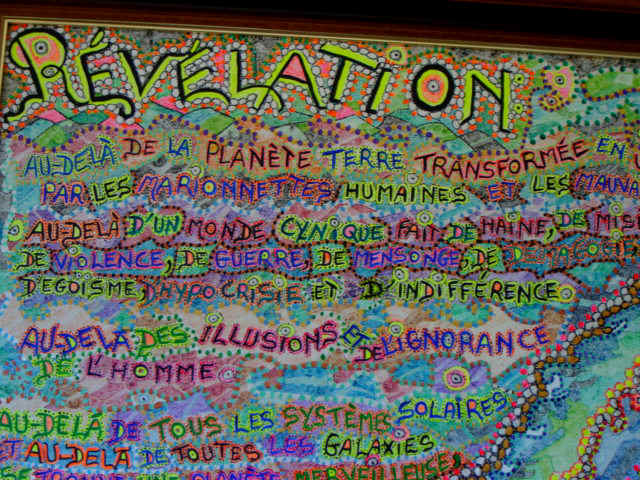 RÉVÉLATION
AU-DELÀ DE LA PLANÈTE TERRE TRANSFORMÉE EN
PAR LES MARIONNETTES HUMAINES ET LES MAUVA
AU-DELÀ D'UN MONDE CYNIQUE FAIT DE HAINE, DE MIS
DE VIOLENCE, DE GUERRE, DE MENSONGE, DE
D'ÉGOÏSME, D'HYPOCRISIE ET D'INDIFFÉRENCE
AU-DELÀ DES ILLUSIONS ET DE L'IGNORANCE
DE L'HOMME
AU-DELÀ DE TOUS LES SYSTÈMES SOLAIRES
ET AU-DELÀ DE TOUTES LES GALAXIES
SE TROUVE UNE PLANÈTE MERVEILLEUSE